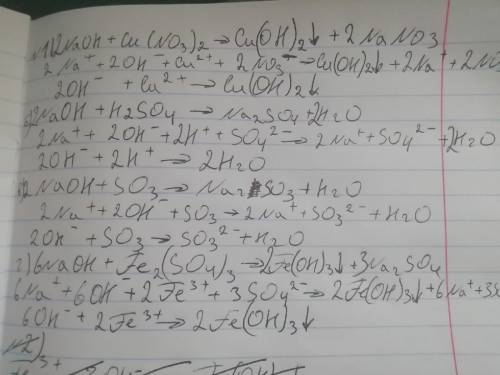 №1) 2NaOH + Cu(NO3)2 → Cu(OH)2↓ + 2NaNO3
2Na⁺ + 2OH⁻ + Cu²⁺ + 2NO3⁻ → Cu(OH)2↓ + 2Na⁺ + 2NO
2OH⁻ + Cu²⁺ → Cu(OH)2↓
2NaOH + H2SO4 → Na2SO4 + 2H2O
2Na⁺ + 2OH⁻ + 2H⁺ + SO4²⁻ → 2Na⁺ + SO4²⁻ + 2H2O
2OH⁻ + 2H⁺ → 2H2O
2NaOH + SO3 → Na2SO3 + H2O
2Na⁺ + 2OH⁻ + SO3 → 2Na⁺ + SO3²⁻ + H2O
2OH⁻ + SO3 → SO3²⁻ + H2O
г) 6NaOH + Fe2(SO4)3 → 2Fe(OH)3↓ + 3Na2SO4
6Na⁺ + 6OH⁻ + 2Fe³⁺ + 3SO4²⁻ → 2Fe(OH)3↓ + 6Na⁺ + 3S
6OH⁻ + 2Fe³⁺ → 2Fe(OH)3↓
№2)